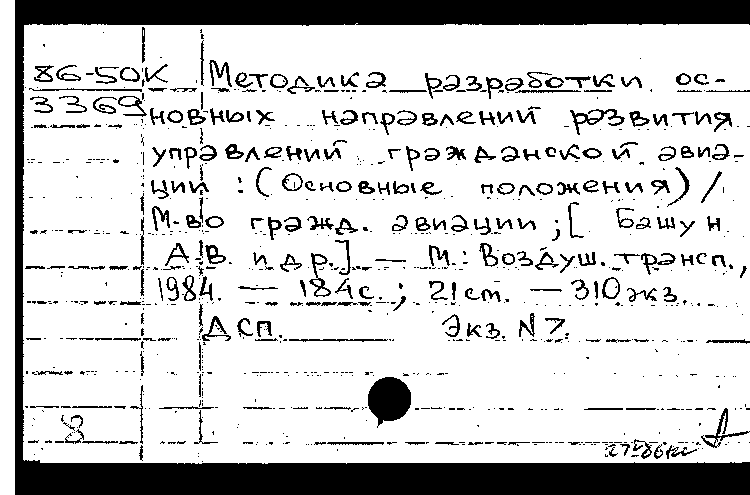 86-50К Методика разработки ос-
3369 новных направлений развития
управлений гражданской авиа-
ции : (Основные положения) /
М-во гражд. авиации ; [ Башун
А.В. и др.] — М.: Воздуш. трансп.,
1984. — 184с. ; 21 ст. — 310 экз.
ДСП. Экз. N 7.
8